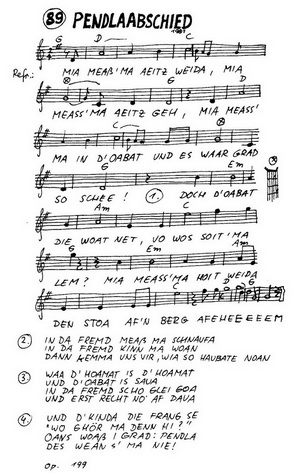 89 PENDLAABSCHIED
1981
G D C
Refr.:
MIA MEAß'MA AEITZ WEIDA, MIA
G D
MEASS'MA AEITZ GEH, MIA MEASS'
C
MA IN D'OABAT UND ES WAAR GRAD
G Em
SO SCHEE! 1. DOCH D'OABAT
Am C
DIE WOAT NET, VO WOS SOIT'MA
G Em Am
LEM? MIA MEASS'MA HOIT WEIDA
C G
DEN STOA AF'N BERG AFEHEEEEEM
2. IN DA FREMD MEAß MA SCHNAUFA
IN DA FREMD KINN MA WOAN
DANN KEMMA UNS VIR, WIA SO HAUBATE NOAN
3. WAA D'HOAMAT IS D'HOAMAT
UND D'OABAT IS SAUA
IN DA FREMD SCHO GLEI GOA
UND ERST RECHT NO' AF DAVA
4. UND D'KINDA DIE FRANG SE
"WO GHÖR MA DENN HI?"
OANS WOAß I GRAD: PENDLA
DES WEAN S' MA NIE!
op. 199